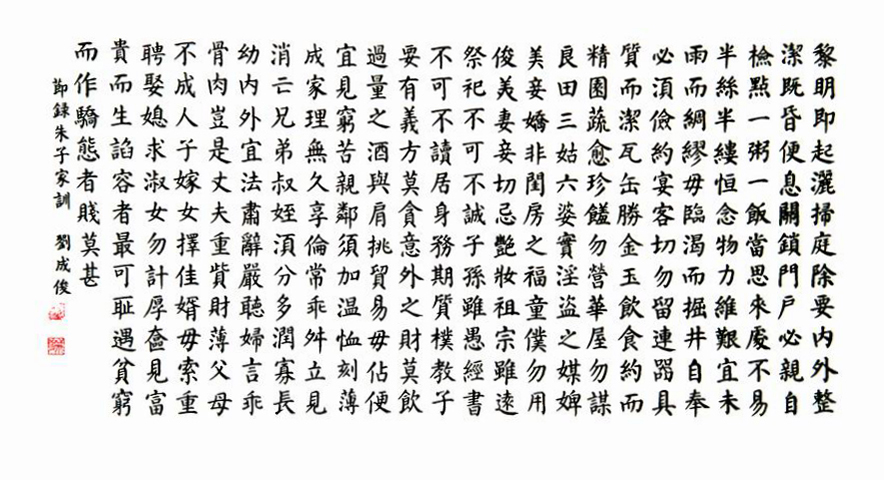 黎明即起灑掃庭除要內外整
潔既昏便息關鎖門戶必親自
檢點一粥一飯當思來處不易
半絲半縷恒念物力維艱宜未
雨而綢繆毋臨渴而掘井自奉
必須儉約宴客切勿留連器具
質而潔瓦缶勝金玉飲食約而
精園蔬愈珍饈勿營華屋勿謀
良田三姑六婆實淫盜之媒婢
美妾嬌非閨房之福童僕勿用
俊美妻妾切忌艷妝祖宗雖遠
祭祀不可不誠子孫雖愚經書
不可不讀居身務期質樸教子
要有義方莫貪意外之財莫飲
過量之酒與肩挑貿易毋佔便
宜見窮苦親鄰須加温恤刻薄
成家理無久享倫常乖舛立見
消亡兄弟叔姪須分多潤寡長
幼內外宜法肅辭嚴聽婦言乖
骨肉豈是丈夫重貲財薄父母
不成人子嫁女擇佳婿毋索重
聘娶媳求淑女勿計厚奩見富
貴而生諂容者最可恥遇貧窮
而作驕態者賤莫甚
節錄朱子家訓 劉成俊